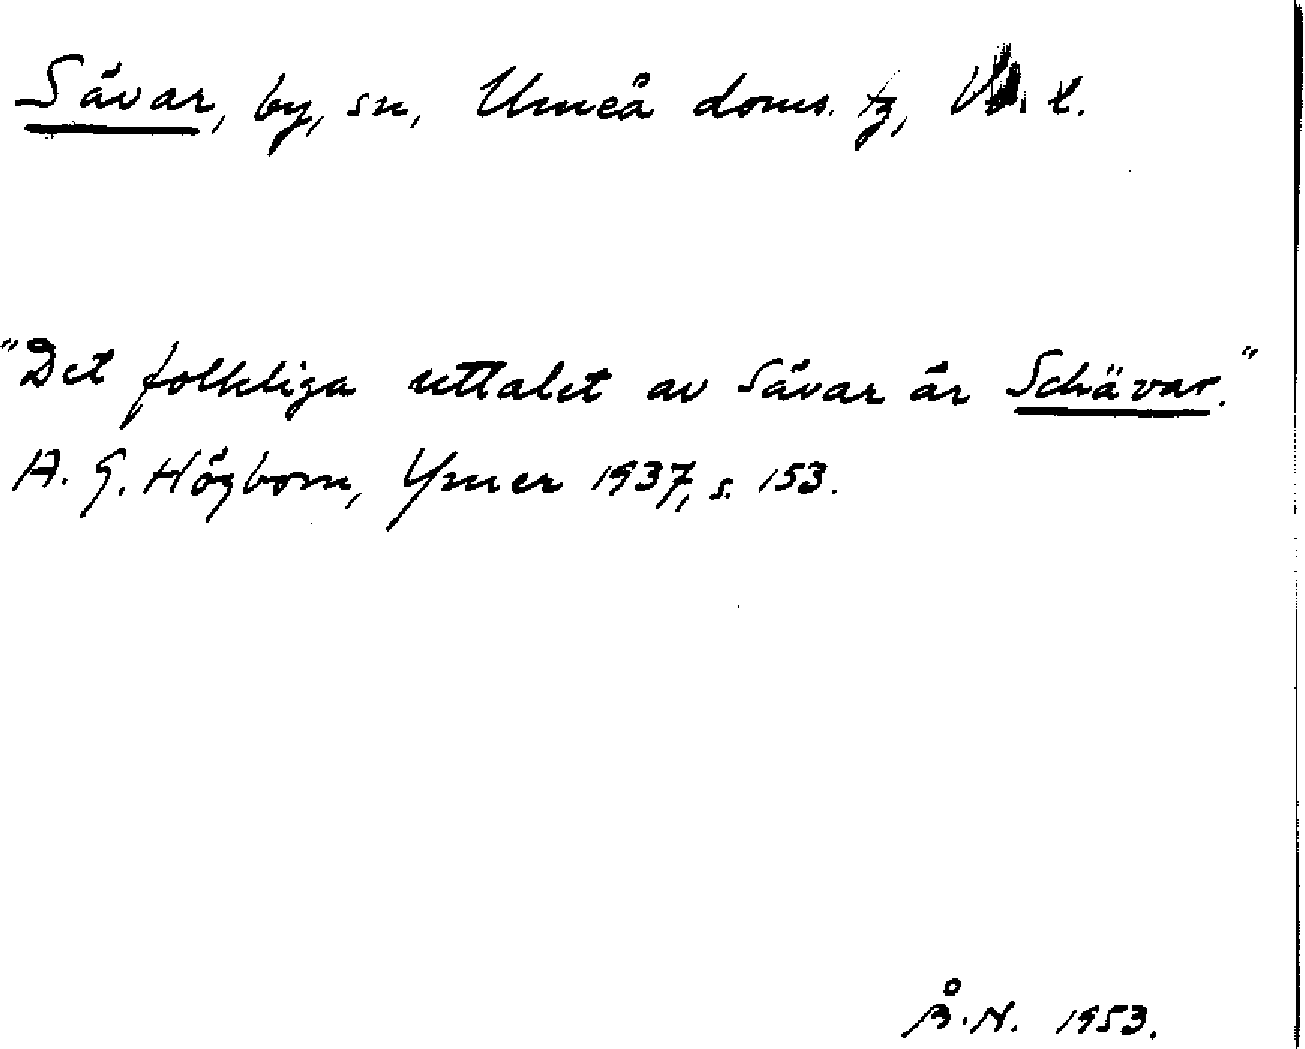 Sävar, by, sn, Umeå doms. tg, Vb. l.
"Det folkliga uttalet av Sävar är Schävar."
A. G. Högbom, Ymer 1937, s. 153.
Å. N. 1953.